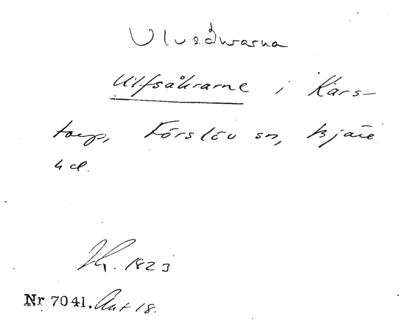 Ulvsåkrarna
Ulfsåkrarne i Kars-
torp, Förslöv sn, Bjäre
hd.
1823
Nr 7041. Akt 18.